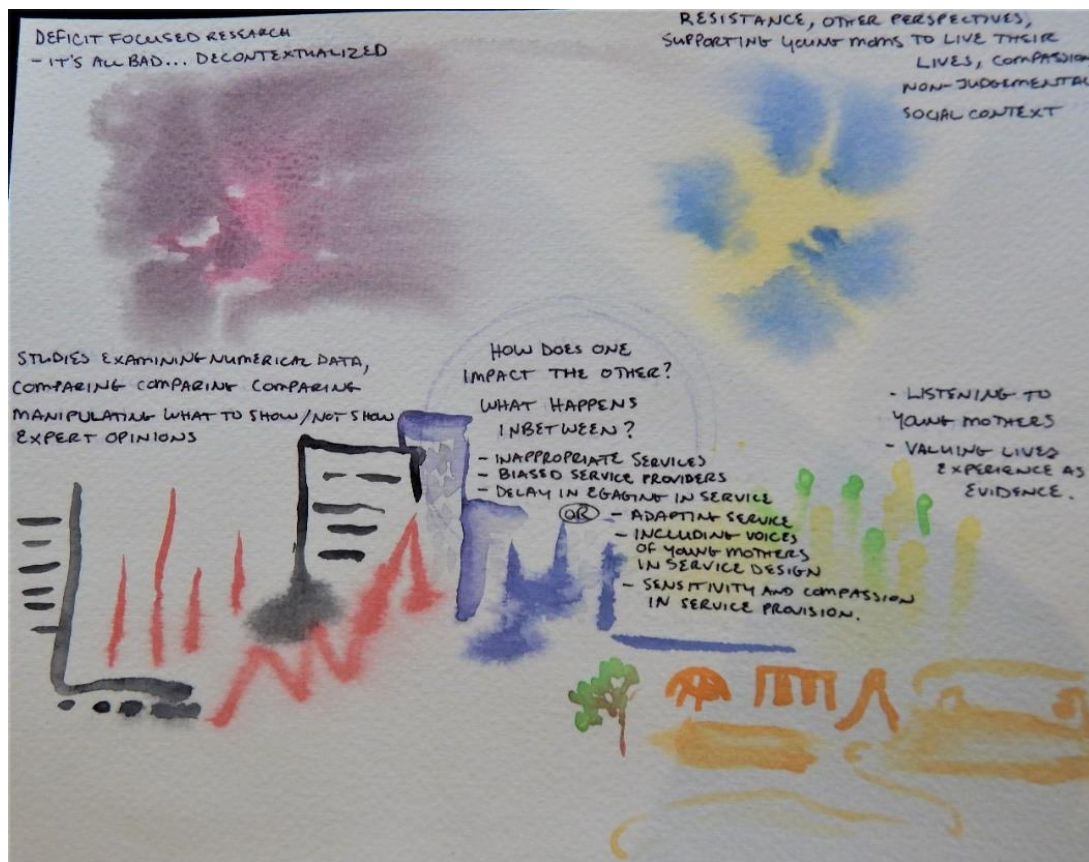 DEFICIT FOCUSED RESEARCH
- IT'S ALL BAD... DECONTEXTUALIZED
RESISTANCE, OTHER PERSPECTIVES,
SUPPORTING YOUNG MOMS TO LIVE THEIR
LIVES, COMPASSION
NON-JUDGEMENTAL
SOCIAL CONTEXT
STUDIES EXAMINING NUMERICAL DATA,
COMPARING COMPARING COMPARING
MANIPULATING WHAT TO SHOW/NOT SHOW
EXPERT OPINIONS
HOW DOES ONE
IMPACT THE OTHER?
WHAT HAPPENS
INBETWEEN?
- INAPPROPRIATE SERVICES
- BIASED SERVICE PROVIDERS
- DELAY IN EGAGING IN SERVICE
OR - ADAPTING SERVICE
- INCLUDING VOICES
OF YOUNG MOTHERS
IN SERVICE DESIGN
- SENSITIVITY AND COMPASSION
IN SERVICE PROVISION.
- LISTENING TO
YOUNG MOTHERS
- VALUING LIVES
EXPERIENCE AS
EVIDENCE.